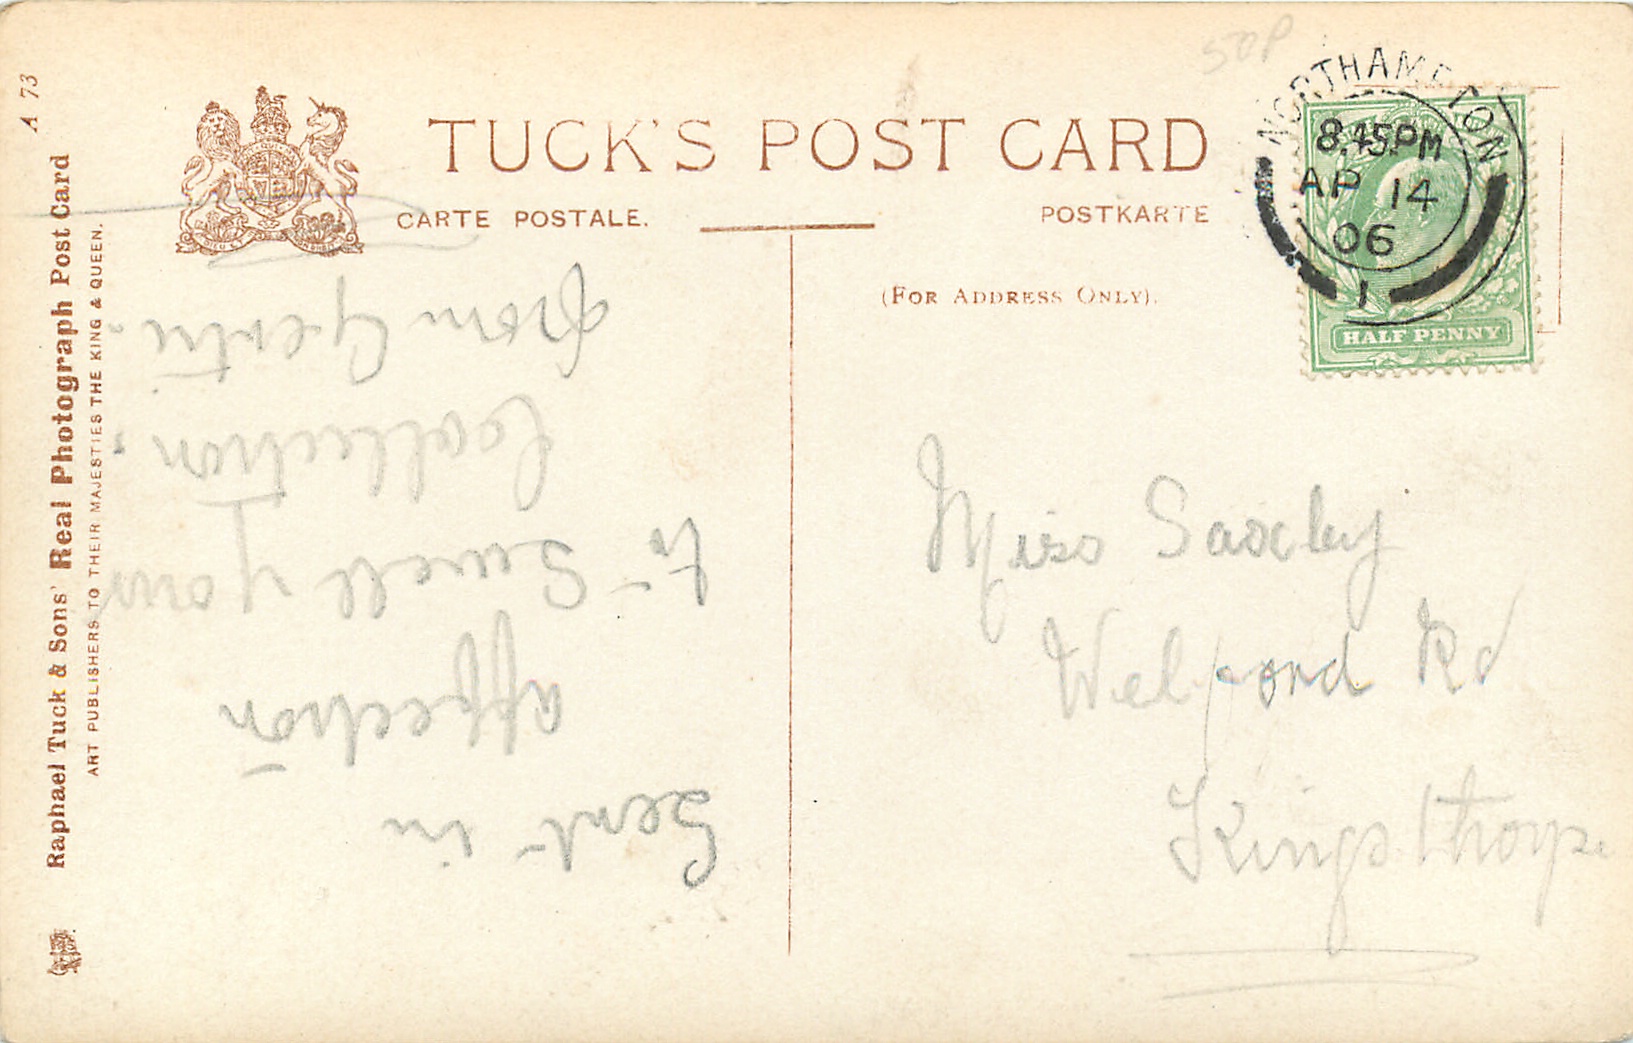 A 73
Raphael Tuck & Sons' Real Photograph Post Card
ART PUBLISHERS TO THEIR MAJESTIES THE KING & QUEEN.
TUCK'S POST CARD
CARTE POSTALE.
POSTKARTE
(FOR ADDRESS ONLY).
50P
NORTHAMPTON
8.45PM
AP 14
06
1
HALF PENNY
Sent in
affection
to Swell your
Collection.
from Gertie.
Miss Saxby
Welford Rd
Kingsthorpe